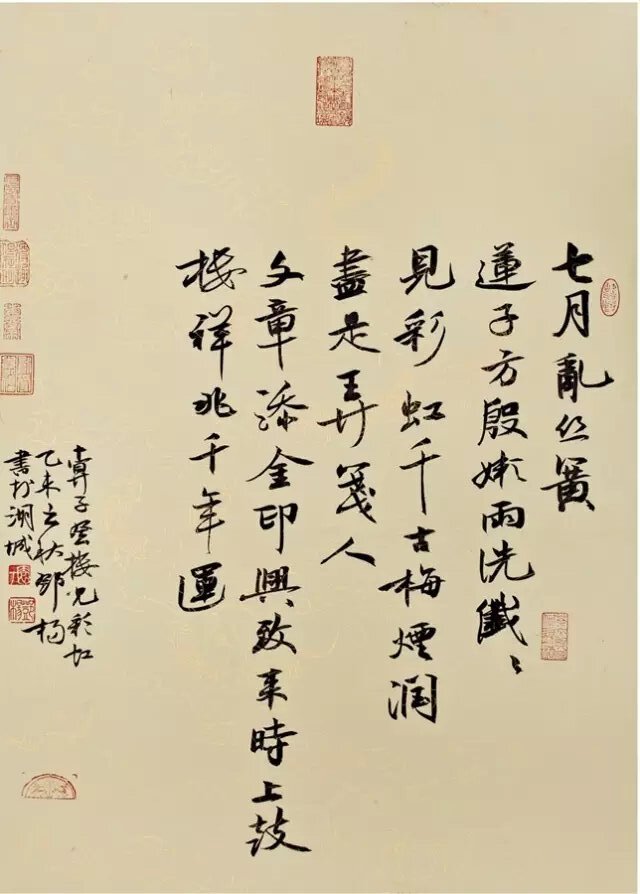 七月亂丝簧
蓮子方殷嫩雨洗纖〻
見彩虹千古梅煙潤
盡是弄箋人
文章添金印興致来時上鼓
楼祥兆千年運
算子 登楼見彩虹
乙未立秋鄒楊
書於湖城